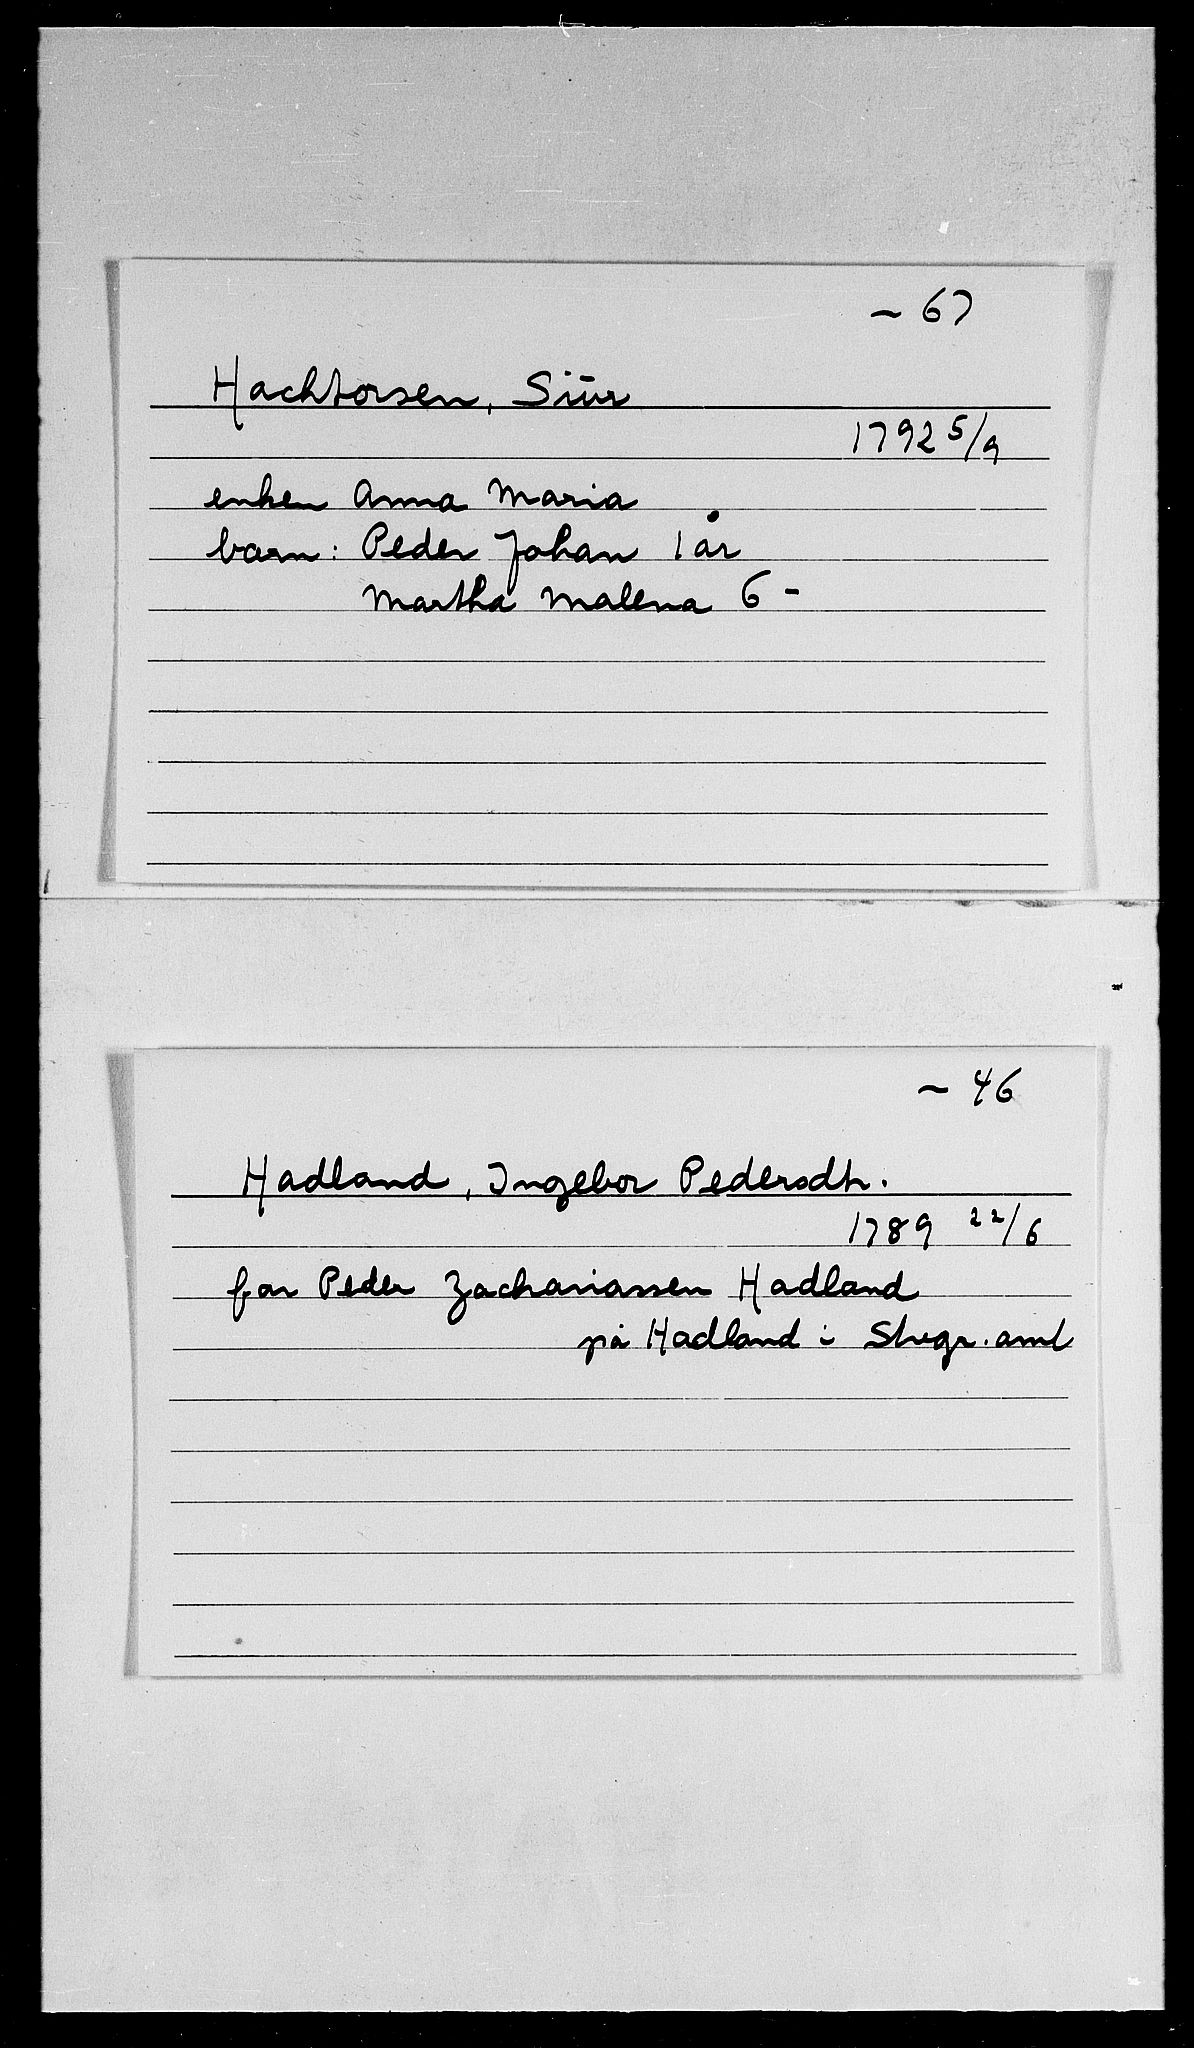 ~ 67
Hachtorsen, Siūr
1792 5/9
enken Anna Maria
barn: Peder Johan 1 år
Martha Malena 6 -
~ 46
Hadland, Ingebor Pedersdtr.
1789 22/6
far Peder Zachariassen Hadland
på Hadland i Stvgr. amt